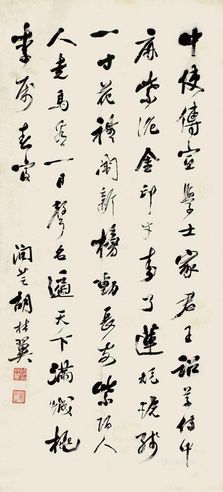 中使傳宣學士家君王詔草侍中
麻紫泥金印才書了蓮炬燒殘
一寸花禮闈新榜動長安紫陌人
人走馬看一日聲名遍天下滿城桃
李屬春官
潤芝胡林翼